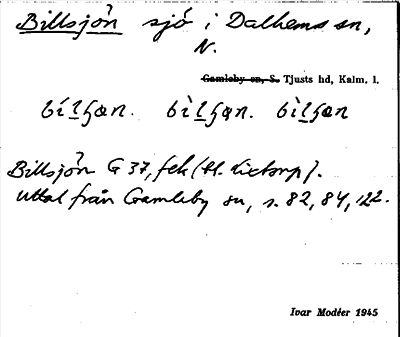 Billsjön sjö i Dalhems sn,
N.
Gamleby sn, S. Tjusts hd, Kalm. l.
Billsjön G 37, fek (bl.
Uttal från Gamleby sn, s. 82, 84, 122.
Ivar Modéer 1945